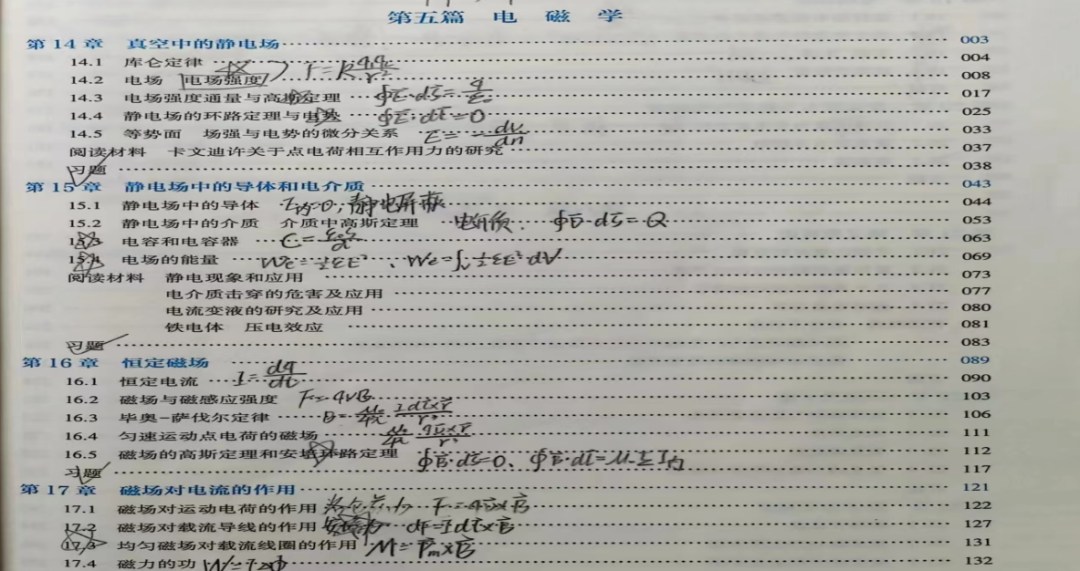 第五篇 电 磁 学
第 14 章 真空中的静电场 003
14.1 库仑定律 F=K 004
14.2 电场 电场强度 008
14.3 电场强度通量与高斯定理 ∮E·dS=q/ε₀ 017
14.4 静电场的环路定理与电势 ∮E·dl=0 025
14.5 等势面 场强与电势的微分关系 E=-dV/dn 033
阅读材料 卡文迪许关于点电荷相互作用力的研究 037
习题 038
第 15 章 静电场中的导体和电介质 043
15.1 静电场中的导体 E内=0, 静电屏蔽 044
15.2 静电场中的介质 介质中高斯定理 ∮D·dS=Q 053
15.3 电容和电容器 C= 063
15.4 电场的能量 We=½εE²、We=∫v½εE²dV 069
阅读材料 静电现象和应用 073
电介质击穿的危害及应用 077
电流变液的研究及应用 080
铁电体 压电效应 081
习题 083
第 16 章 恒定磁场 089
16.1 恒定电流 I=dq/dt 090
16.2 磁场与磁感应强度 F=qvB 103
16.3 毕奥-萨伐尔定律 106
16.4 匀速运动点电荷的磁场 111
16.5 磁场的高斯定理和安培环路定理 ∮B·dS=0、∮B·dl=μ₀ΣI内 112
习题 117
第 17 章 磁场对电流的作用 121
17.1 磁场对运动电荷的作用 洛仑兹力 F=qv×B 122
17.2 磁场对载流导线的作用 安培力 dF=Idl×B 127
17.3 均匀磁场对载流线圈的作用 M=Pm×B 131
17.4 磁力的功 132